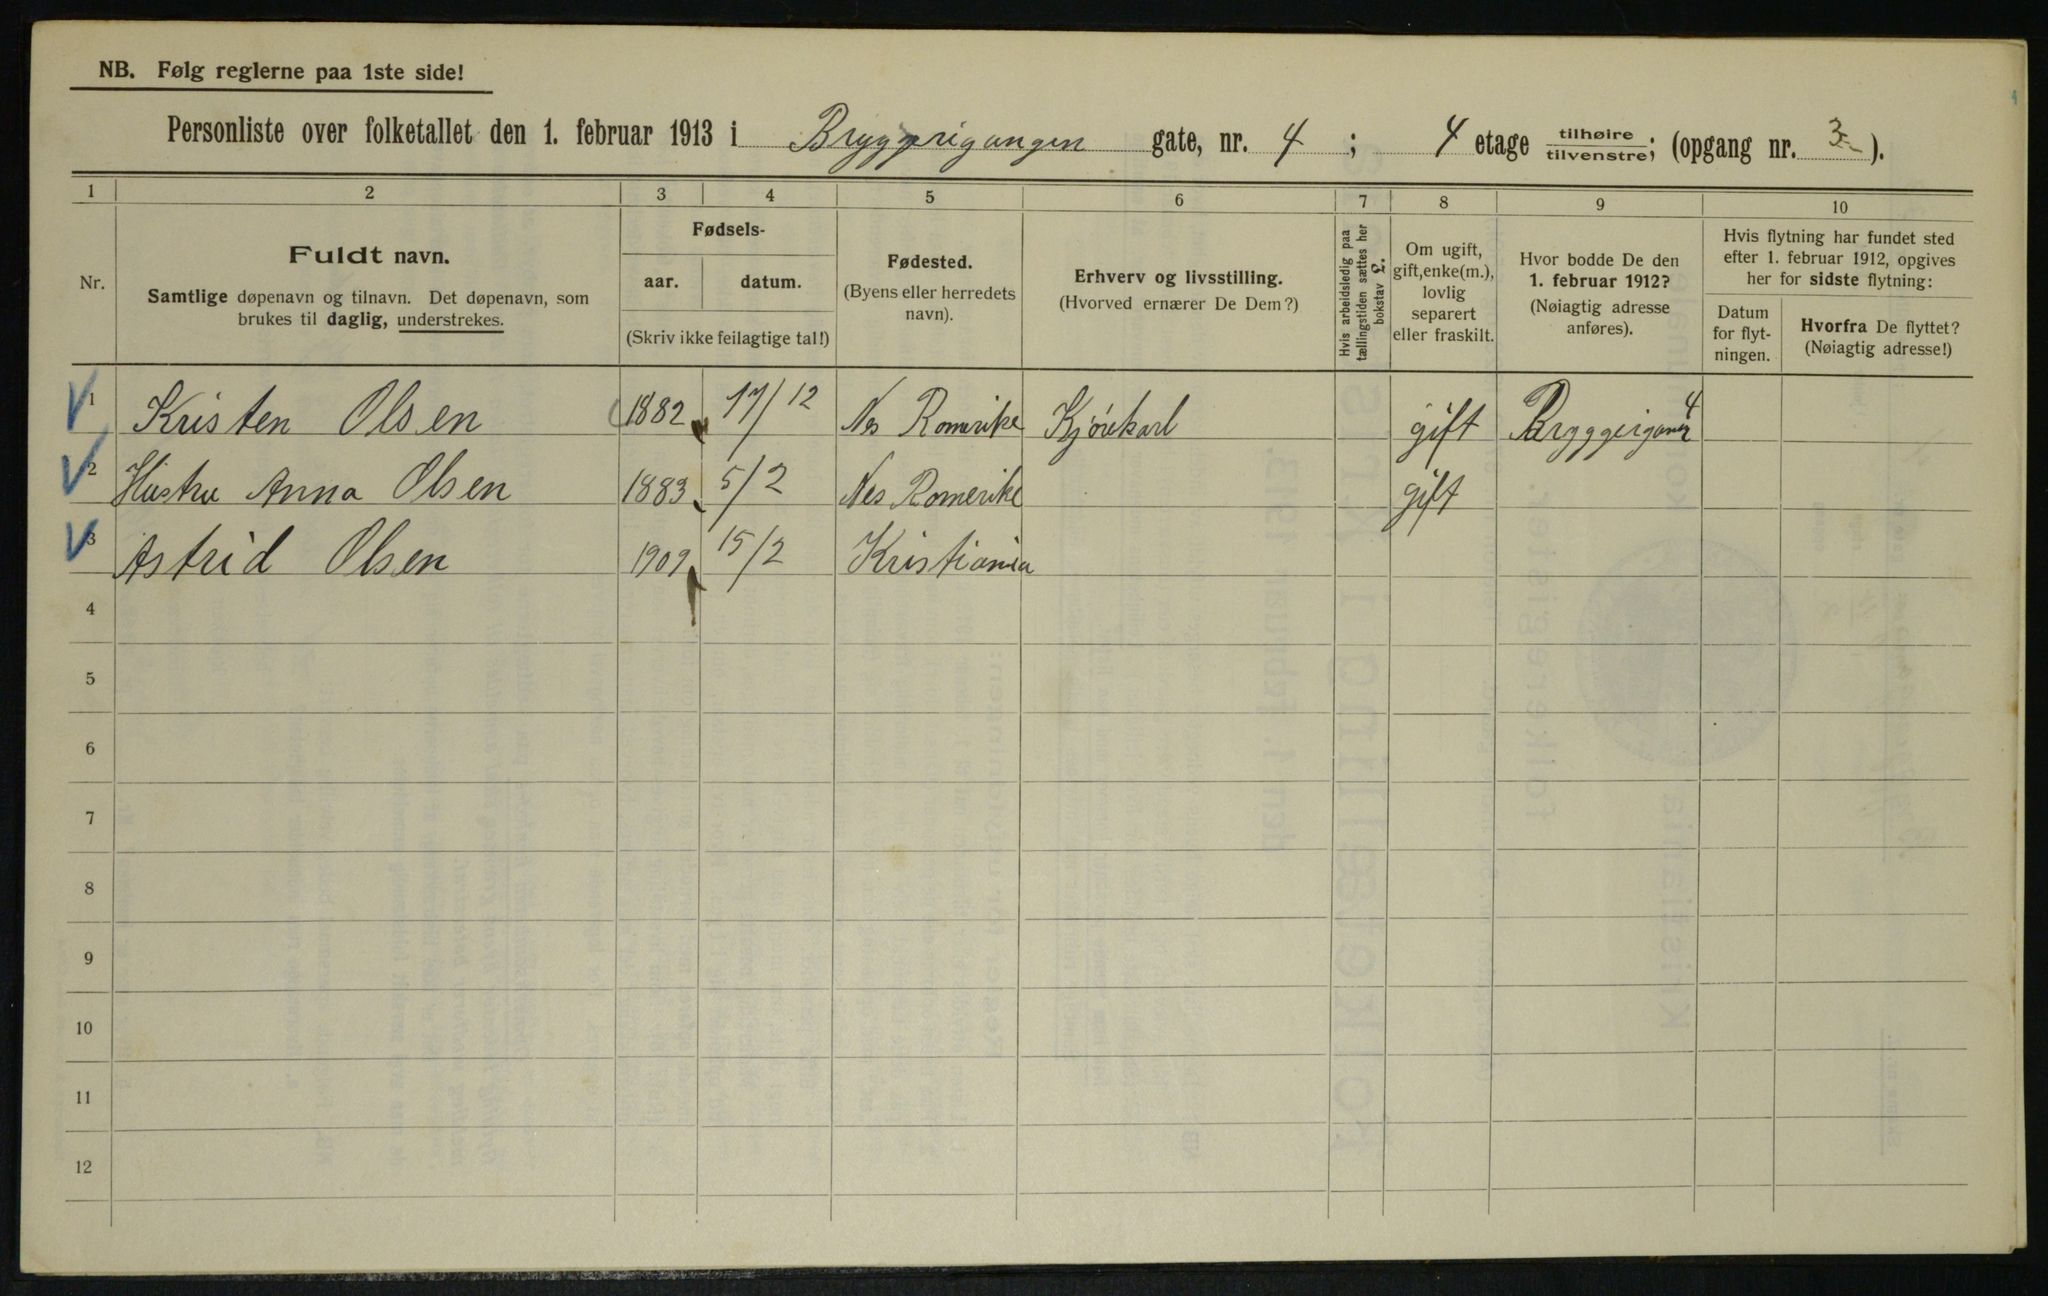 NB. Følg reglerne paa 1ste side!
Personliste over folketallet den 1. februar 1913 i Bryggerigangen gate, nr. 4 ; 4 etage tilhøire tilvenstre; (opgang nr. 3 ).
1 2 3 4 5 6 7 8 9 10
Nr.
Fuldt navn.
Samtlige døpenavn og tilnavn. Det døpenavn, som
brukes til daglig, understrekes.
Fødsels-
aar. datum.
(Skriv ikke feilagtige tal!)
Fødested.
(Byens eller herredets
navn).
Erhverv og livsstilling.
(Hvorved ernærer De Dem?)
Hvis arbeidsledig paa
tællingstiden sættes her
bokstav L.
Om ugift,
gift,enke(m.),
lovlig
separert
eller fraskilt.
Hvor bodde De den
1. februar 1912?
(Nøiagtig adresse
anføres).
Hvis flytning har fundet sted
efter 1. februar 1912, opgives
her for sidste flytning:
Datum
for flyt-
ningen.
Hvorfra De flyttet?
(Nøiagtig adresse!)
1 Kristen Olsen 1882 17/12 Nes Romerike Kjørekarl gift 4
2 Hustru Anna Olsen 1883 5/2 Nes Romerike gift
3 Astrid Olsen 1909 15/2 Kristiania
4
5
6
7
8
9
10
11
12